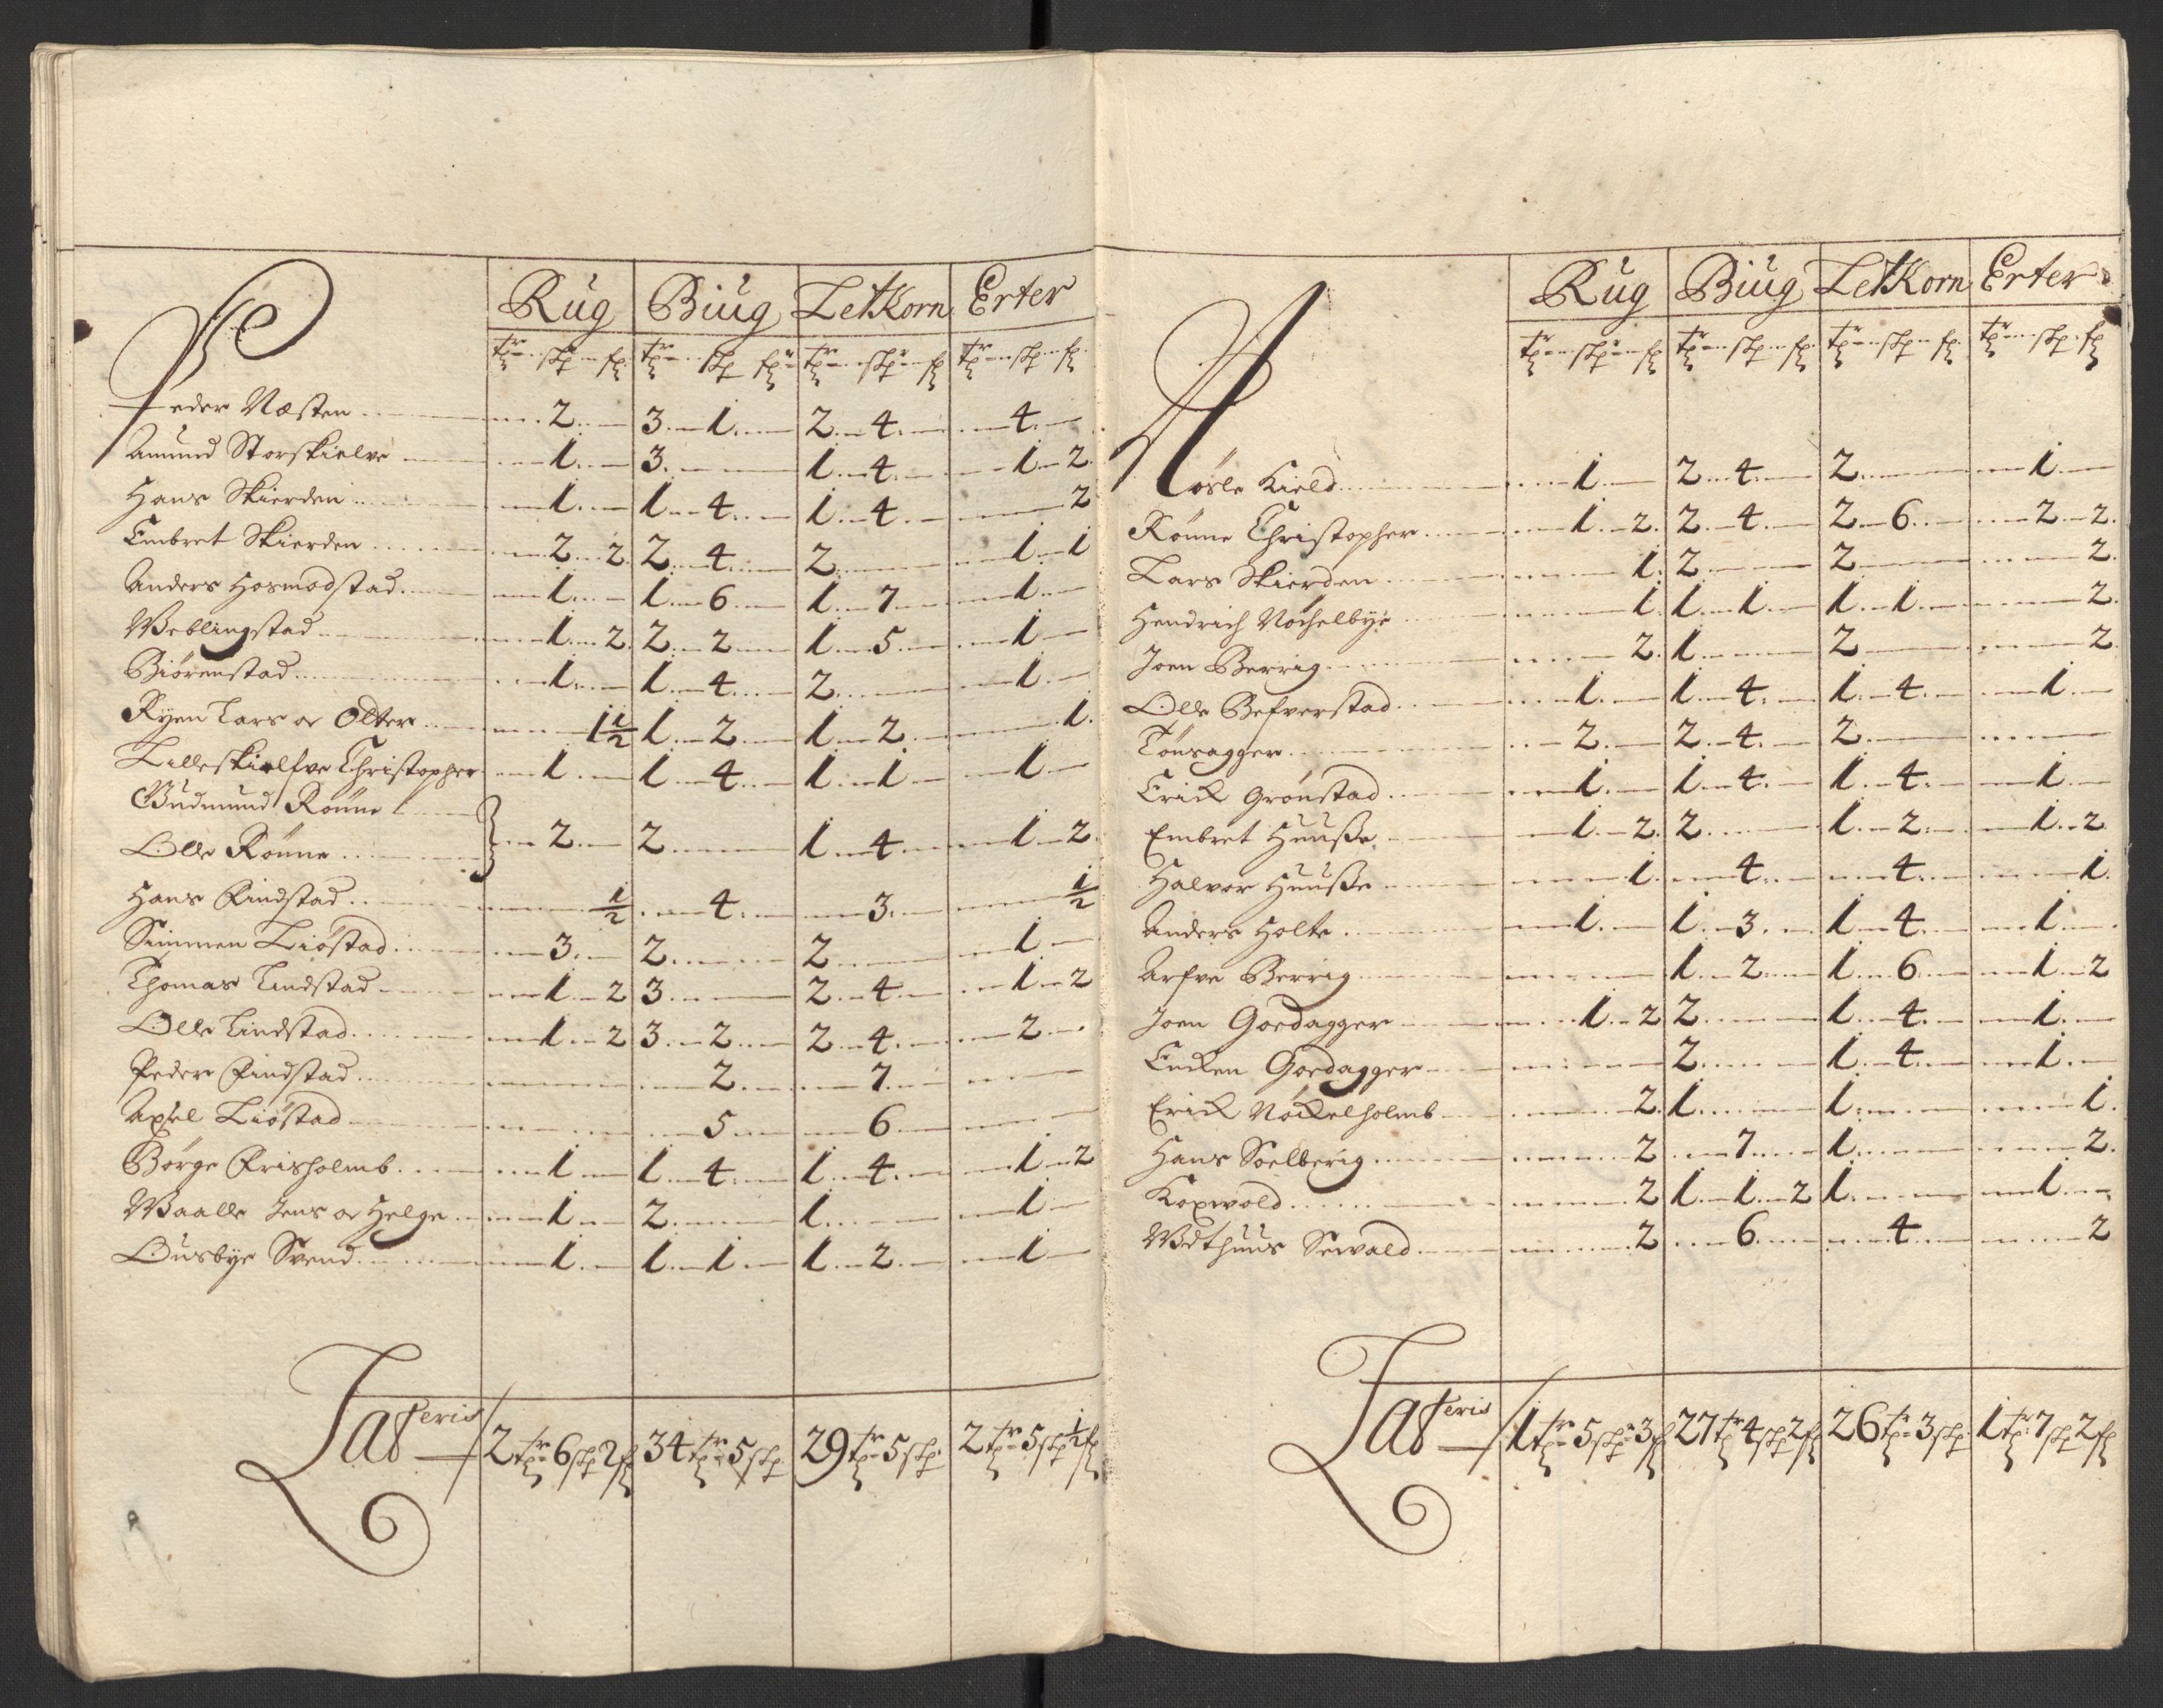 Rug Biug Letkorn Erter
tr skp fr tr skp fr tr skp fr tr skp fr
Peder Næsten 2 3 1 2 4 4
Amund Storskielve 1 3 1 4 1 2
Hans Skierden 1 1 4 1 4 2
Embret Skierden 2 2 2 4 2 1 1
Anders Hosmodstad 1 1 6 1 7 1
Weblingstad 1 2 2 2 1 5 1
Biörenstad 1 1 4 2 1
Ryen Lars oc Olter 1½ 1 2 1 2 1
Lilleskielfve Christopher 1 1 4 1 1 1
Gudmund Rönne
Olle Rönne 2 2 1 4 1 2
Hans Findstad ½ 4 3 ½
Simmen Liöstad 3 2 2 1
Thomas Lindstad 1 2 3 2 4 1 2
Olle Lindstad 1 2 3 2 2 4 2
Peder Findstad 2 7
Axsel Liöstad 5 6
Börge Frisholmb 1 1 4 1 4 1 2
Waalle Jens oc Helge 1 2 1 1
Ousbye Svend 1 1 1 1 2 1
Lateris 2 tr 6 skp 2 fr 34 tr 5 skp 29 tr 5 skp 2 tr 5 skp ½ fr
Rug Biug Letkorn Erter
tr skp fr tr skp fr tr skp fr tr skp fr
Aösle Kield 1 2 4 2 1
Rönne Christopher 1 2 2 4 2 6 2 2
Lars Skierden 1 2 2 2
Hendrich Nöchelbye 1 1 1 1 1 2
Joen Berrig 2 1 2 2
Olle Befverstad 1 1 4 1 4 1
Tönsagger 2 2 4 2
Erick Grönstad 1 1 4 1 4 1
Embret Huuße 1 2 2 1 2 1 2
Halvor Huuße 1 4 4 1
Anders Holte 1 1 3 1 4 1
Arfve Berrig 1 2 1 6 1 2
Joen Goedagger 1 2 2 1 4 1
Encken Goedagger 2 1 4 1
Erick Nöckelholmb 2 1 1 1
Hans Soelberig 2 7 1 2
Koxwold 2 1 1 2 1 1
Wdthuus Sewald 2 6 4 2
Lateris 1 tr 5 skp 3 fr 27 tr 4 skp 2 fr 26 tr 3 skp 1 tr 7 skp 2 fr